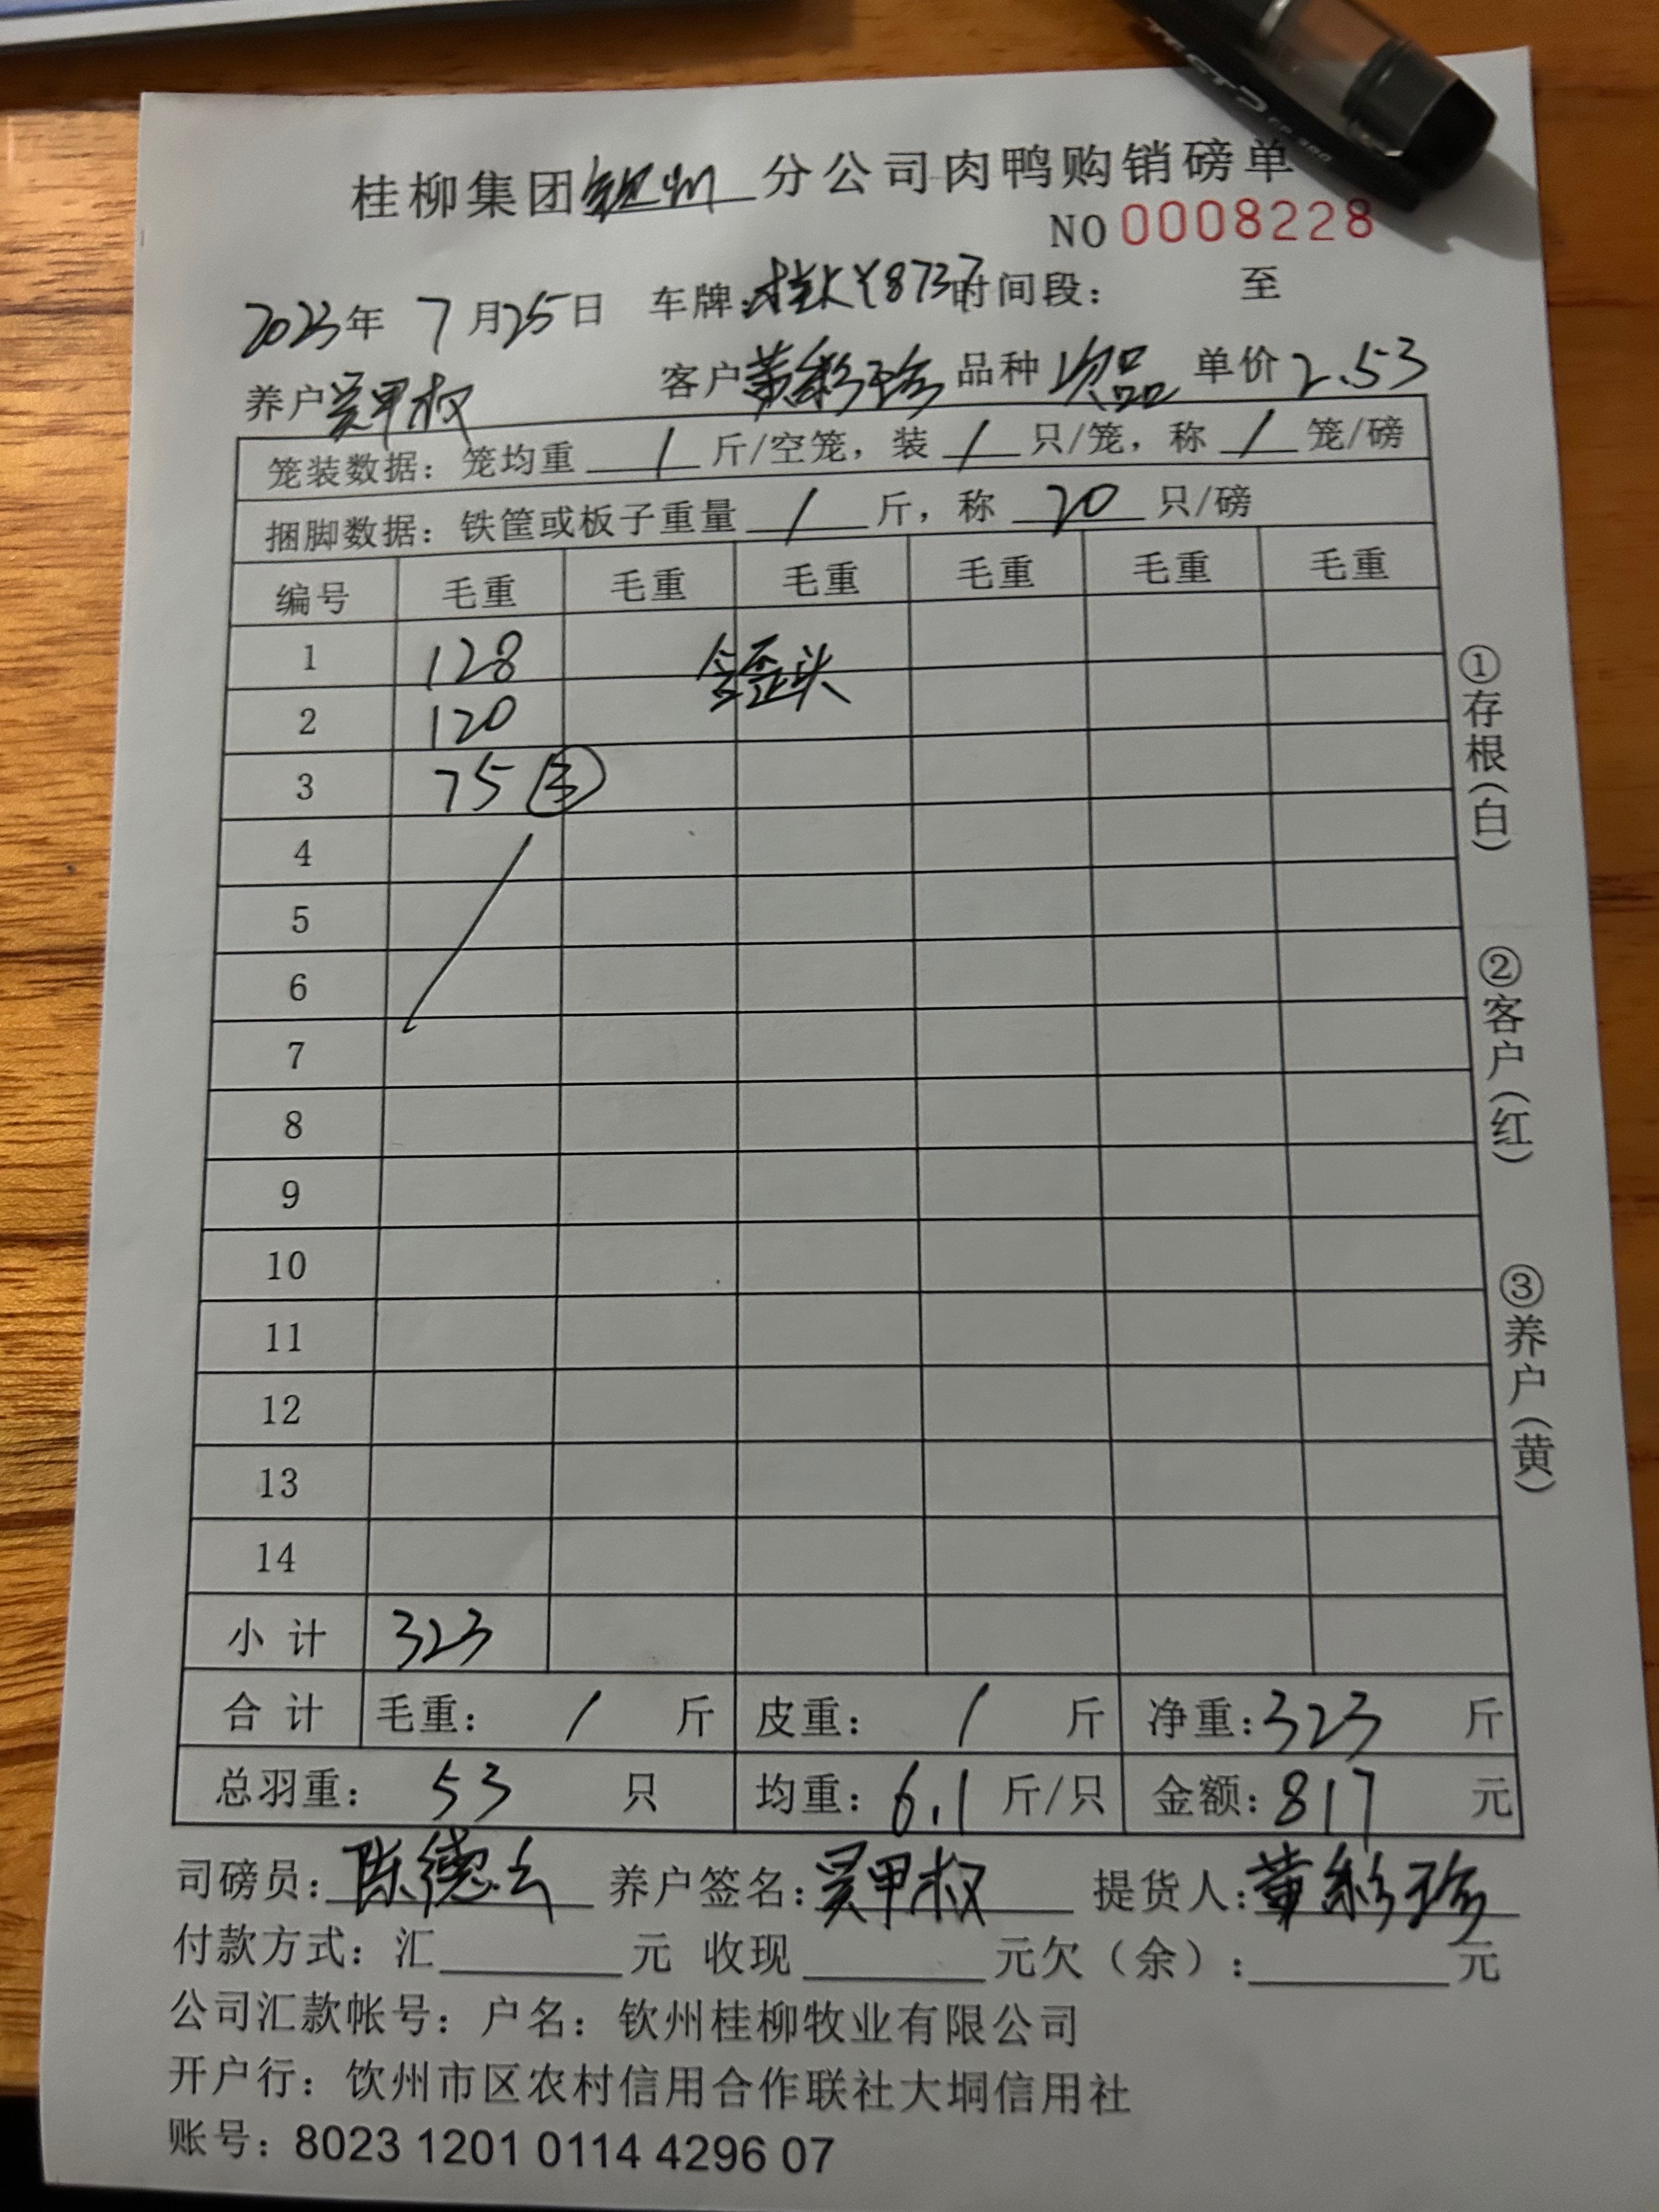 桂柳集团钦州分公司肉鸭购销磅单
NO 0008228
2023年 7月25日 车牌:桂KY8737时间段: 至
养户吴甲权 客户黄彩珍 品种 次品 单价2.53
笼装数据：笼均重 / 斤/空笼，装 / 只/笼，称 / 笼/磅
捆脚数据：铁筐或板子重量 / 斤，称 20 只/磅
编号 毛重 毛重 毛重 毛重 毛重 毛重
1 128 含歪头
2 120
3 75
4
5
6
7
8
9
10
11
12
13
14
小计 323
合计 毛重： / 斤 皮重： / 斤 净重：323 斤
总羽重： 53 只 均重：6.1 斤/只 金额：817 元
司磅员：陈德 养户签名：吴甲权 提货人：黄彩珍
付款方式：汇 元 收现 元欠（余）： 元
公司汇款帐号：户名：钦州桂柳牧业有限公司
开户行：钦州市区农村信用合作联社大垌信用社
账号：8023 1201 0114 4296 07
①存根（白）
②客户（红）
③养户（黄）